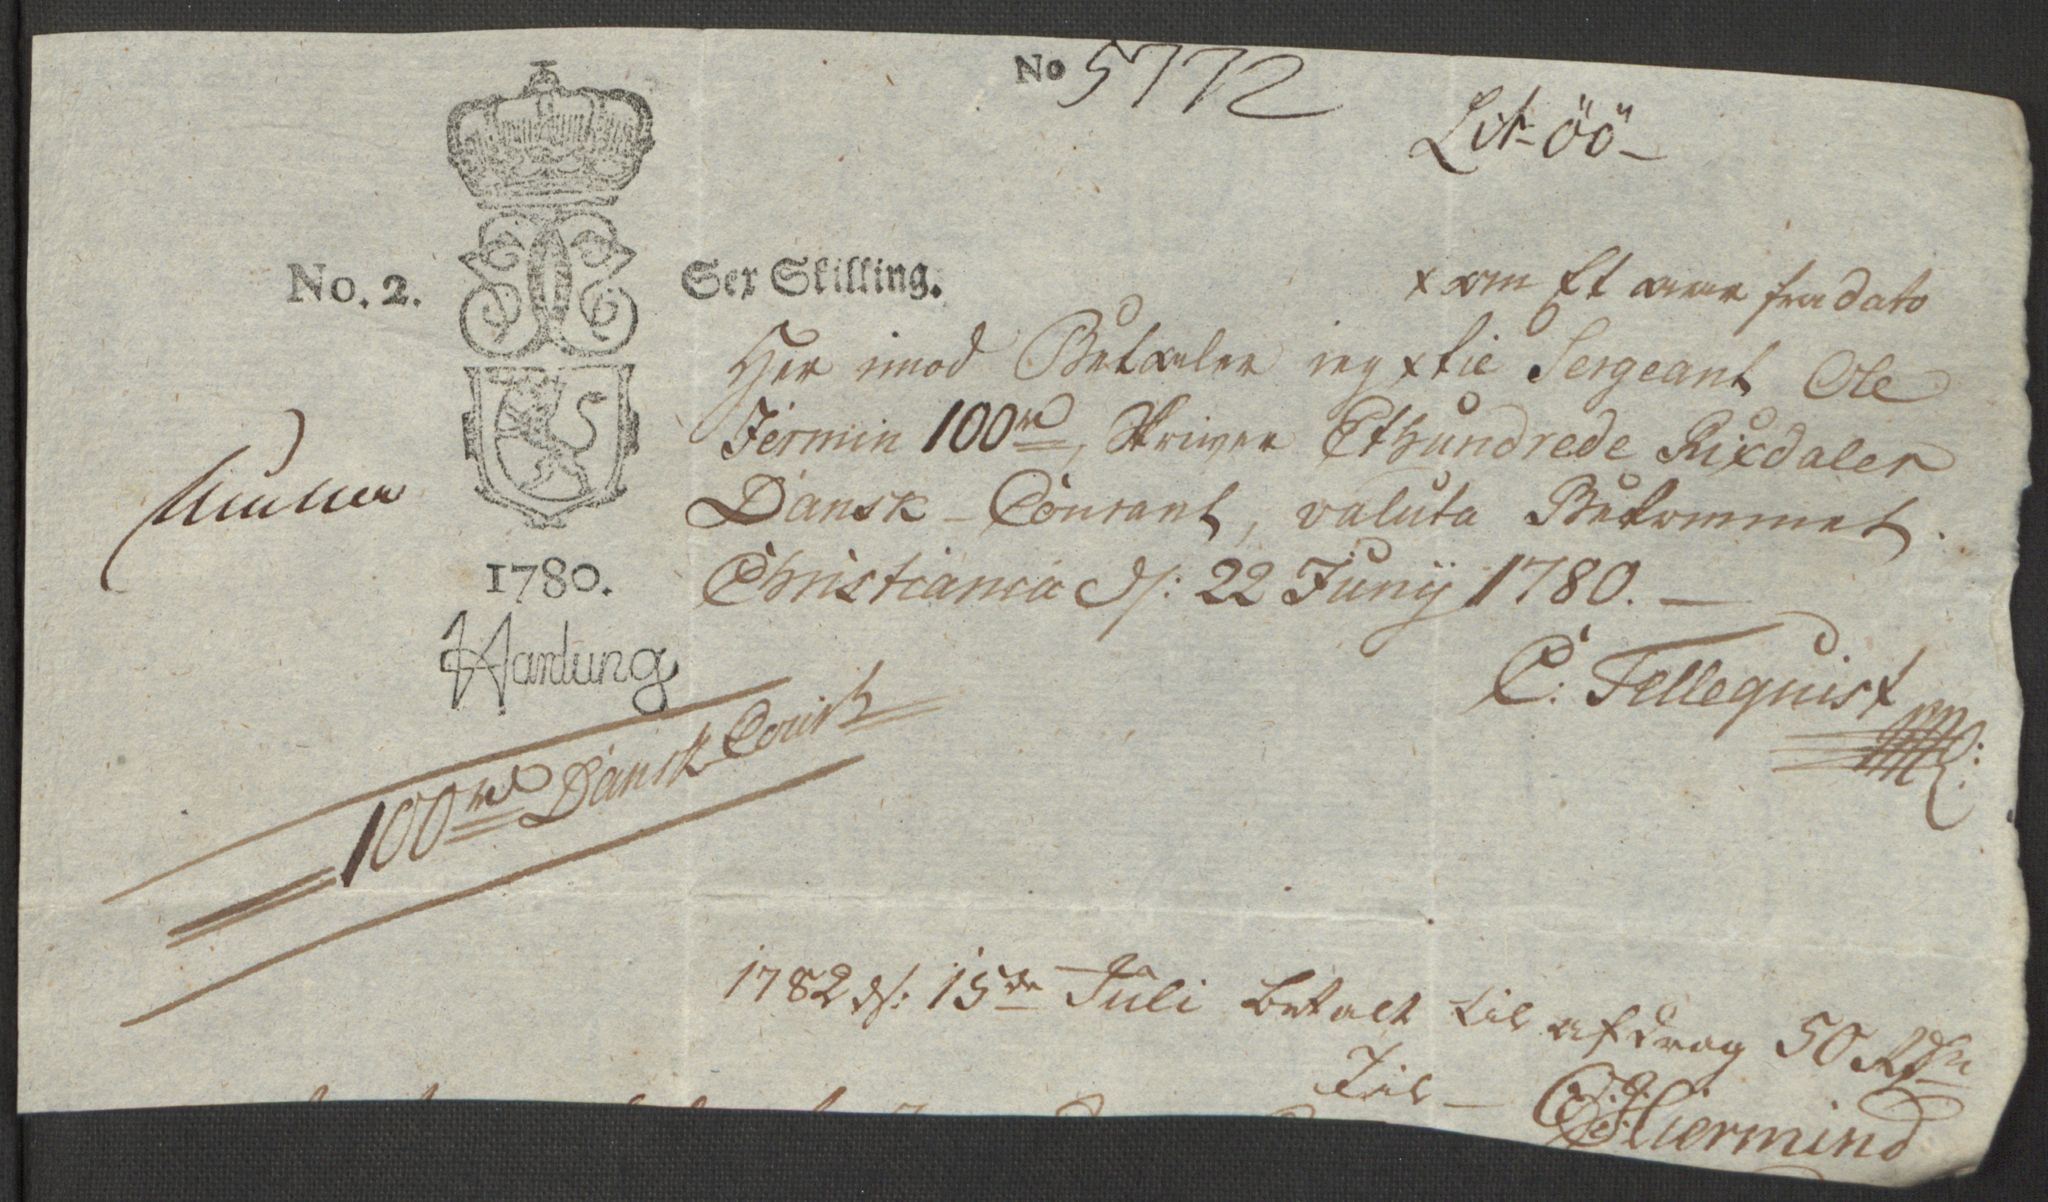 No 5772
Lit. öö
No. 2. Sex Skilling.
x om Et aar fra dato
Her imod Betaler ieg x til Sergeant Ole
Jermin 100 rd, skriver Ethundrede Rixdaler
Dansk Courant, valuta Bekommet.
Christiania d: 22 Junij 1780.
1780.
Hartung
C: Tellequist
100 rd Dansk Cour
1782 d: 15de Juli betalt til afdrag 50 Rdr
Til
Hiermind